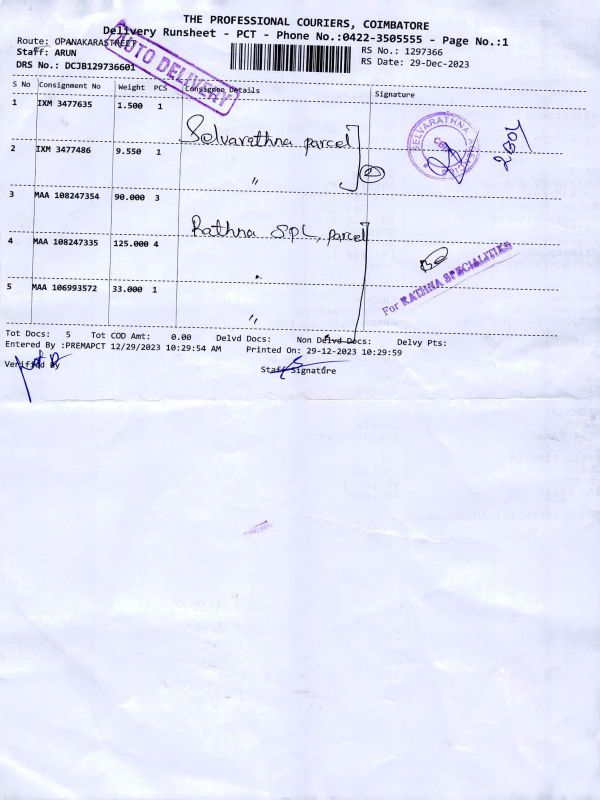 THE PROFESSIONAL COURIERS, COIMBATORE
Delivery Runsheet - PCT - Phone No.:0422-3505555 - Page No.:1
Route: OPANAKARASTREET
RS No.: 1297366
Staff: ARUN
RS Date: 29-Dec-2023
DRS No.: DCJB129736601
AUTO DELIVERY
S No Consignment No Weight PCS Consignee Details Signature
1 IXM 3477635 1.500 1
Selvarathna parcel
SELVARATHNA
2 IXM 3477486 9.550 1
〃
2
3 MAA 108247354 90.000 3
Rathna Spl, parcel
4 MAA 108247335 125.000 4
For RATHNA SPECIALITIES
5 MAA 106993572 33.000 1
〃
Tot Docs: 5 Tot COD Amt: 0.00 Delvd Docs: Non Delvd Docs: Delvy Pts:
Entered By :PREMAPCT 12/29/2023 10:29:54 AM Printed On: 29-12-2023 10:29:59
Verified By Staff Signature